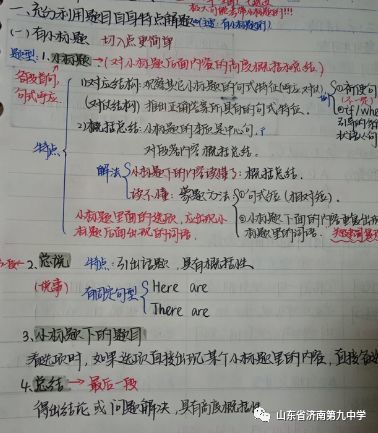 一、充分利用题目自身特点解题
(一)有小标题 切入点更简单
题型: 1.小标题→(对小标题后面内容的高度概括和总结)
句式呼应.
特点
1)对应结构:观察其它小标题的句式特征(呼应对仗)
(对仗结构) 推出正确答案所具有的句式特征.
①祈使句
引导的
2)概括总结:小标题的本质是中心句.
对段落内容概括总结.
解法
小标题下的内容读懂了:概括总结.
读不懂:蒙题方法
①句式法(相对应)
②小标题下面的内容重复出现
标题里的词语.
小标题里面的选项,应出现小
标题后面出现的词语.
2.总说 特点:引出话题,具有概括性
有固定句型
Here are
There are
3.小标题下的题目
看选项时,如果选项直接出现某个小标题里的内容,直接
4.总结→最后一段
得出结论或问题解决,具有高度概括性
山东省济南第九中学